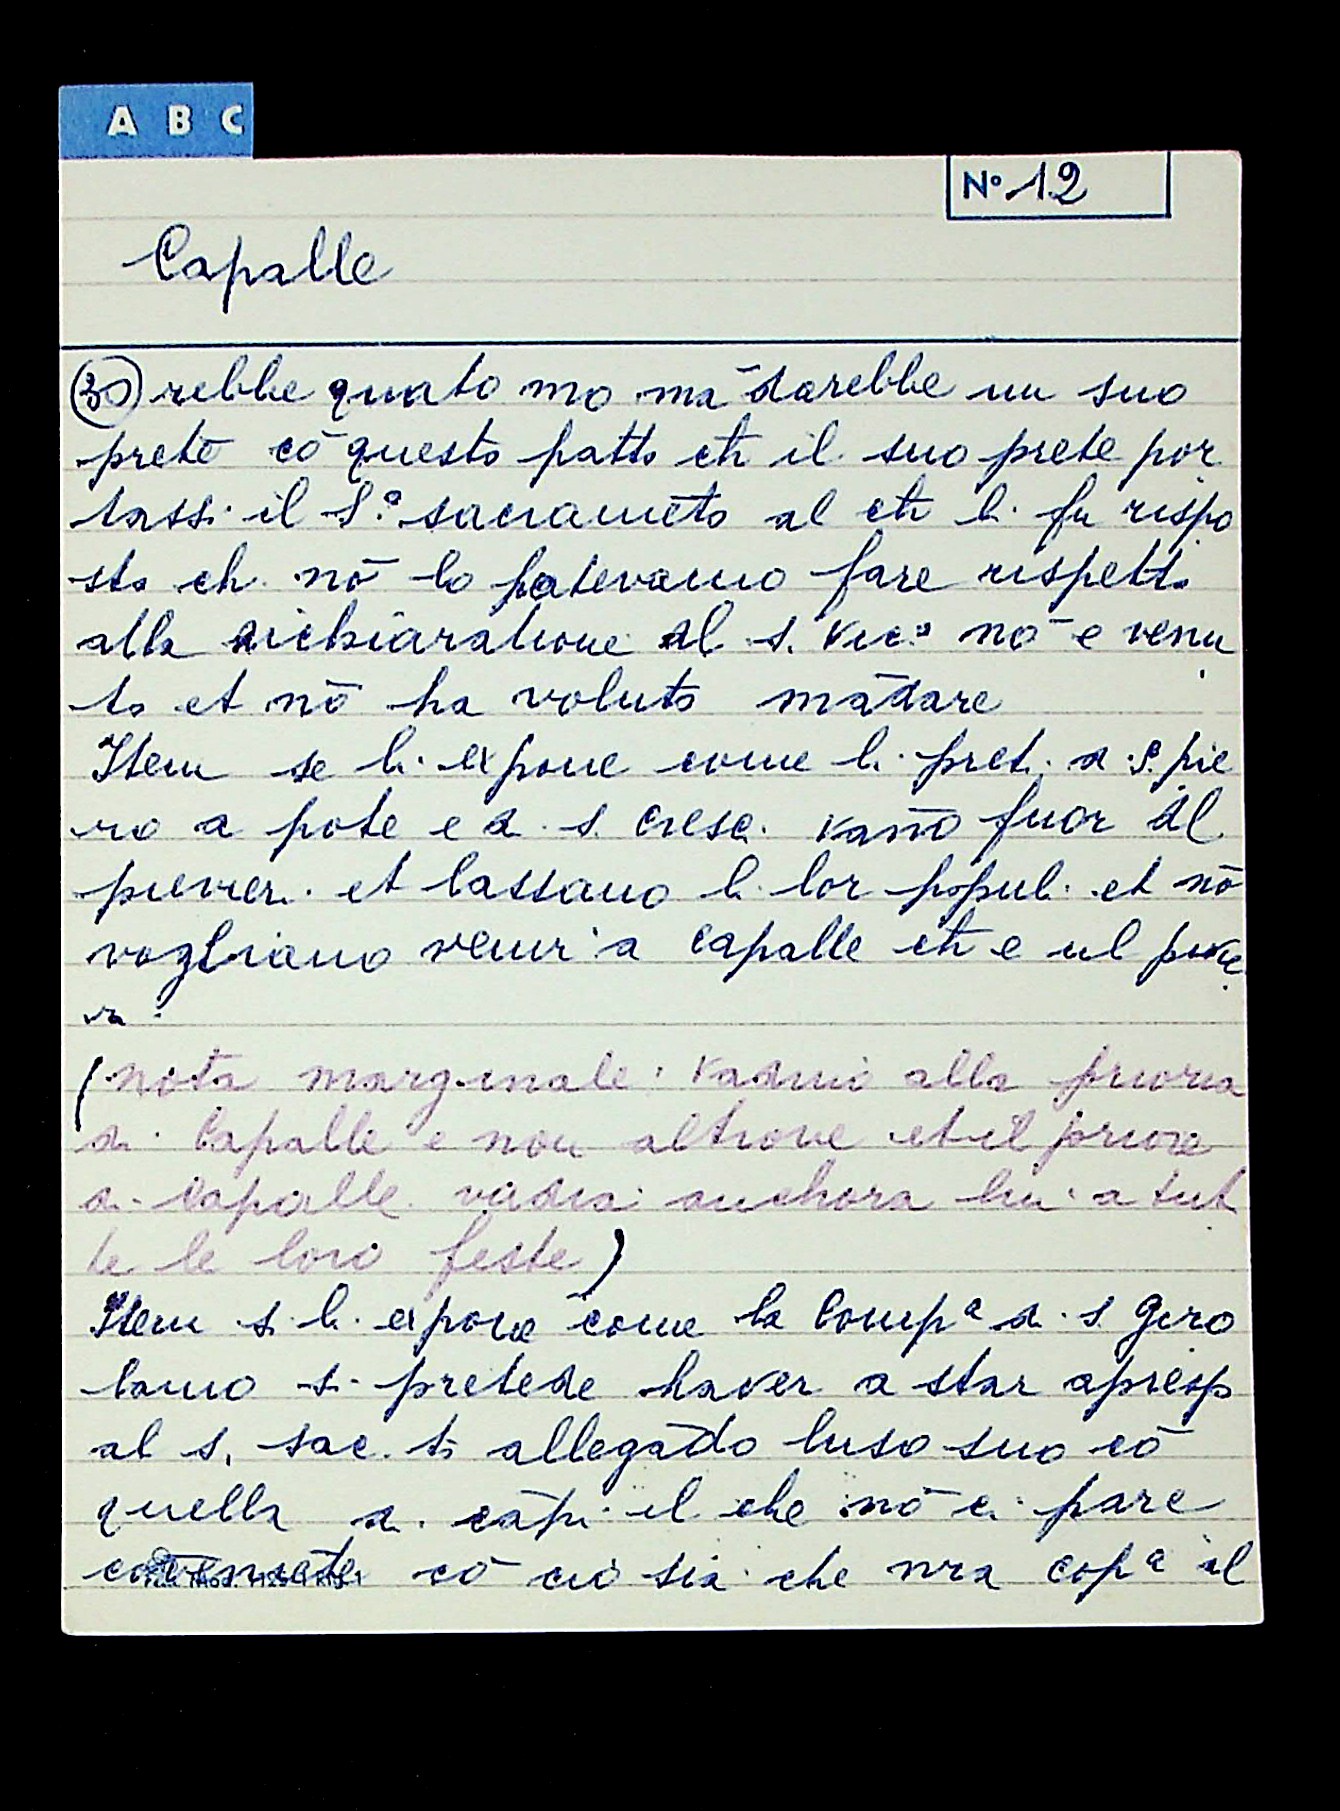 A B C
Nº 12
Capalle
(30) rebbe quato mo mādarebbe un suo
prete cō questo patto ch il suo prete por
tassi il S.º sacramēto al ch li fu rispo
sto ch nō lo potevamo fare rispetto
alla dichiaratione del s. Vicº nō e venu
to et nō ha voluto mādare
Item se li expone come li preti di S. pie
ro a pōte e di s. cresci vāno fuor del
pivieri et lassano li lor populi et nō
vogliano venir a capalle ch e nel pivie
ri
(nota marginale: Vadino alla prioria
di Capalle e non altrove et il priore
di Capalle vadia anchora lui a tut
te le loro feste)
Item si li expone come la Compª di s Giro
lamo si pretēde haver a star apresso
al s. sac. to allegādo luso suo cō
quella di cāpi il che nō ci pare
cōveniēte cō cio sia che nra copª al